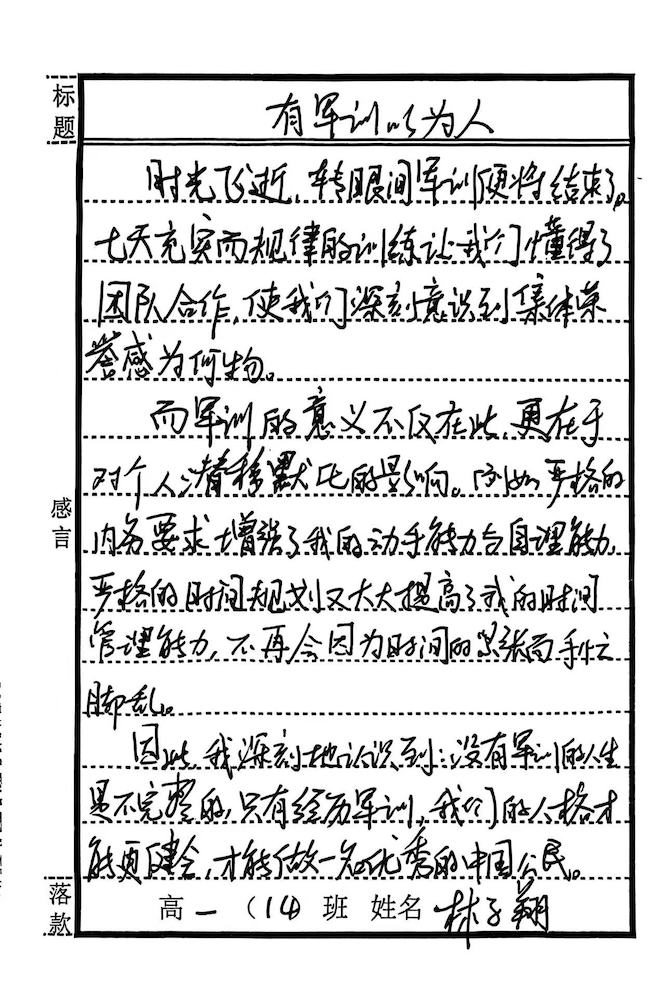 标题
有军训以为人
时光飞逝，转眼间军训便将结束了。
七天充实而规律的训练让我们懂得了
团队合作，使我们深刻意识到集体荣
誉感为何物。
而军训的意义不仅在此，更在于
对个人潜移默化的影响。例如严格的
内务要求增强了我的动手能力与自理能力，
严格的时间规划又大大提高了我的时间
管理能力，不再会因为时间的紧张而手忙
脚乱。
感言
因此，我深刻地认识到：没有军训的人生
是不完整的，只有经历军训，我们的人格才
能更健全，才能做一名优秀的中国公民。
落款
高一（14）班 姓名 林子翔